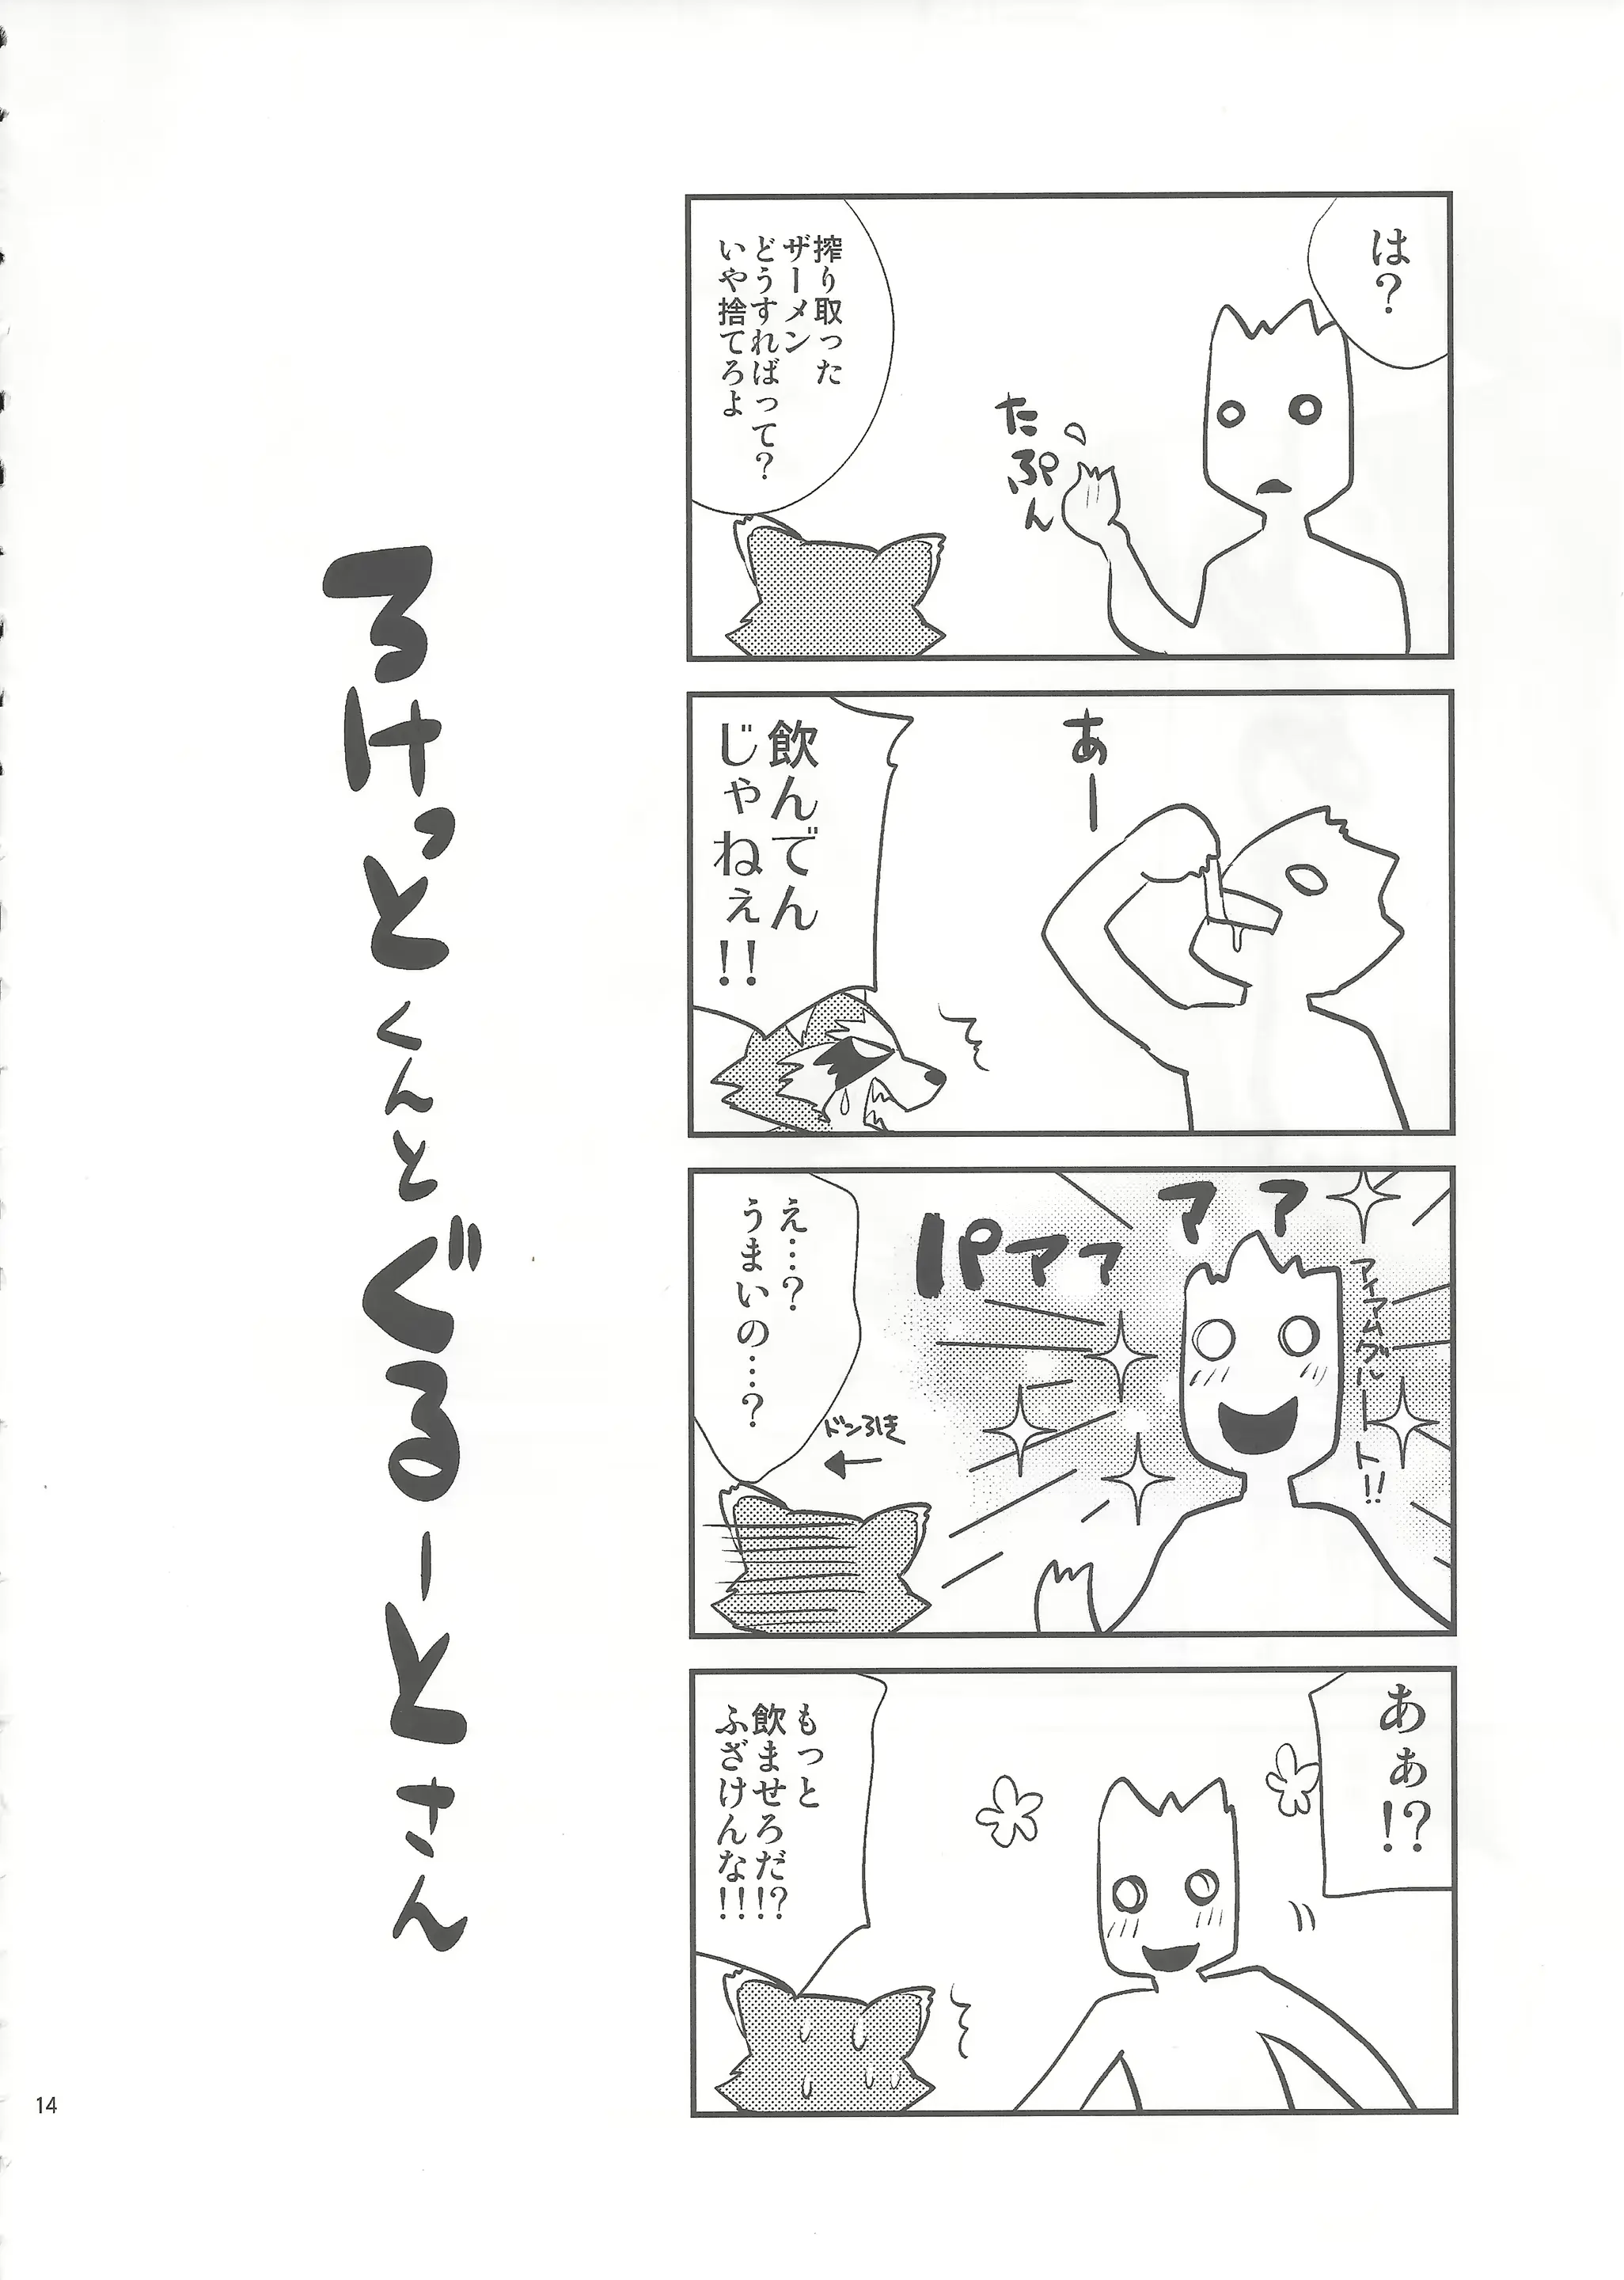 は?
搾り取った
ザーメン
どうすればって?
いや捨てろよ
たぷん
あー
飲んでん
じゃねぇ!!
アイアムグルート!!
パアアアア
え…?
うまいの…?
ドン引き
あぁ!?
もっと
飲ませろだ!?
ふざけんな!!
ろけっとくんとぐるーとさん
14